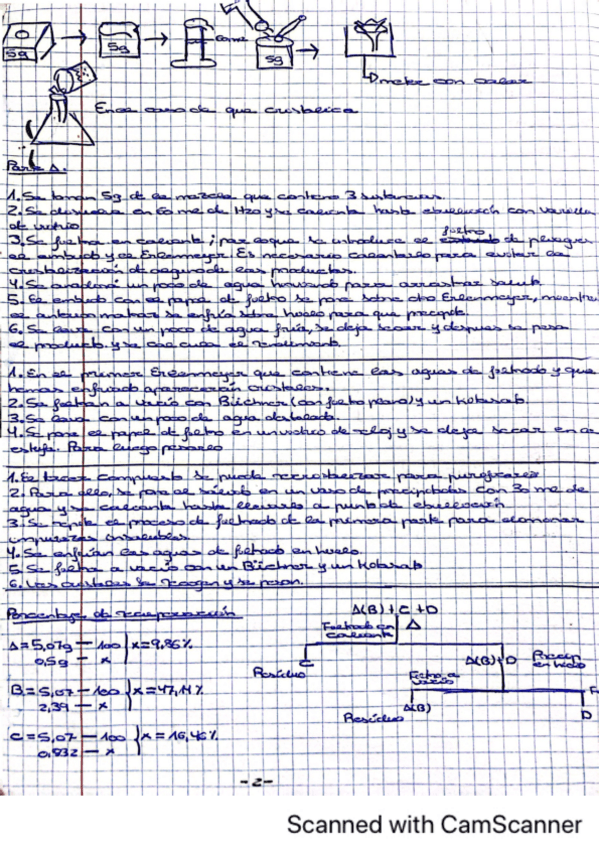 5g
5g
5g
meter con calor
En el caso de que cristalice
Parte A.
1. Se toman 5g de la mezcla que contiene 3 sustancias.
2. Se disuelve en 60 ml de H2O y se calienta hasta ebullición con varilla
de vidrio
3. Se filtra en caliente; para lo que se introduce el filtro de pliegues
el embudo y el Erlenmeyer. Es necesario calentarlo para evitar la
cristalización de alguno de los productos.
4. Se añadirá un poco de agua hirviendo para arrastrar
5. El embudo con el papel de filtro se pone sobre otro Erlenmeyer, mientras
el anterior matraz se enfría sobre hielo para que precipite
6. Se lava con un poco de agua fría, se deja secar y después se pesa
el producto y se calcula el rendimiento.
1. En el primer Erlenmeyer que contiene las aguas de filtrado y que
hemos enfriado aparecerán cristales.
2. Se filtran a vacío con Büchner (con filtro plano) y un kitasato
3. Se lava con un poco de agua destilada.
4. Se pone el papel de filtro en un vidrio de reloj y se deja secar en la
estufa. Para luego pesarlo
1. El tercer compuesto se puede recristalizar para purificarlo
2. Para ello, se pone el sólido en un vaso de precipitados con 30 ml de
agua y se calienta hasta llevarlo a punto de ebullición
3. Se repite el proceso de filtrado de la primera parte para eliminar
impurezas insolubles
4. Se enfrían las aguas de filtrado en hielo
5. Se filtra a vacío con un Büchner y un kitasato
6. Los cristales se recogen y se pesan.
Porcentaje de recuperación
A = 5,07g — 100 } x = 9,86%
0,5g — x
B = 5,07 — 100 } x = 47,14%
2,39 — x
C = 5,07 — 100 } x = 16,4%
0,832 — x
A(B) + C + D
Filtrado en caliente Δ
C
Residuo
A(B) + D
Precip en hielo
Filtro a vacío
A(B)
Residuo
F
D
-2-
Scanned with CamScanner